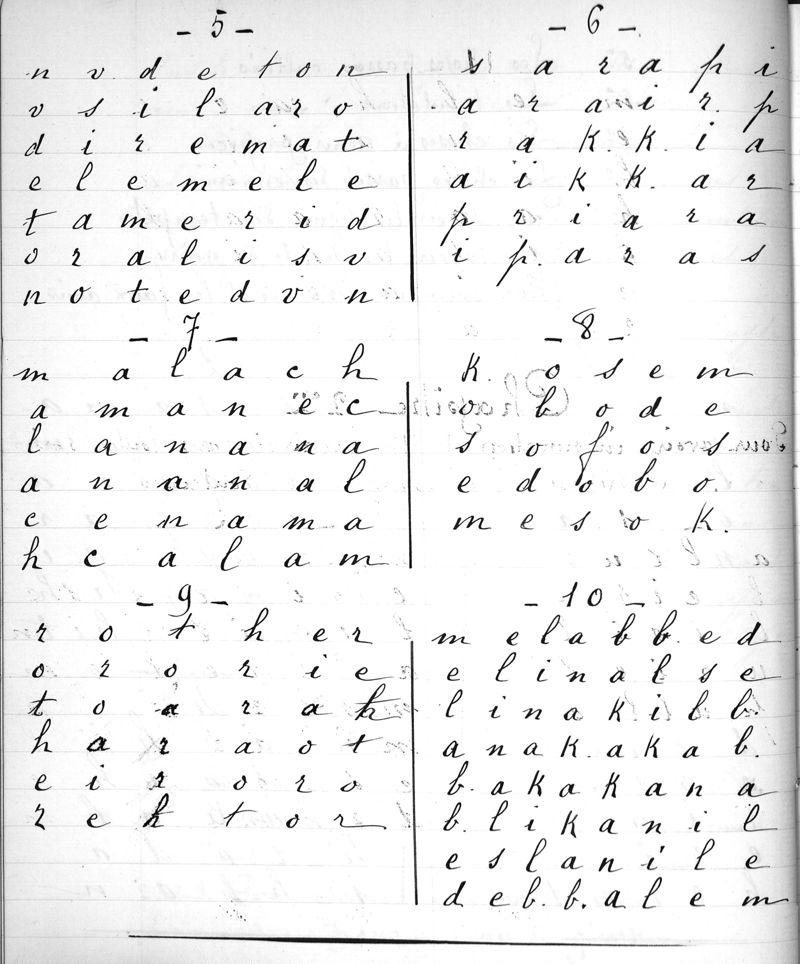 - 5 -
n v. d e t o n
v s i l a r o
d i r e m a t
e l e m e l e
t a m e r i d
o r a l i s v
n o t e d v n
- 6 -
s a r a p i
a r a i r. p
r a K. K. i a
a i K K. a r
p r i a r a
i p. a r a s
- 7 -
m a l a c h
a m a n e c
l a n a n a
a n a n a l
c e n a m a
h c a l a m
- 8 -
K. o s e m
o b o d e
s o f o s
e d o b o.
m e s o K.
- 9 -
r o t h e r
o r o r i e
t o a r a h
h a r a o t
e i r o r o
r e h t o r
- 10 -
m e l a b b. e d
e l i n a l s e
l i n a K i l b.
a n a K. a K a b.
b. a K a K a n a
b. l i K a n i l
e s l a n i l e
d e b. b. a l e m